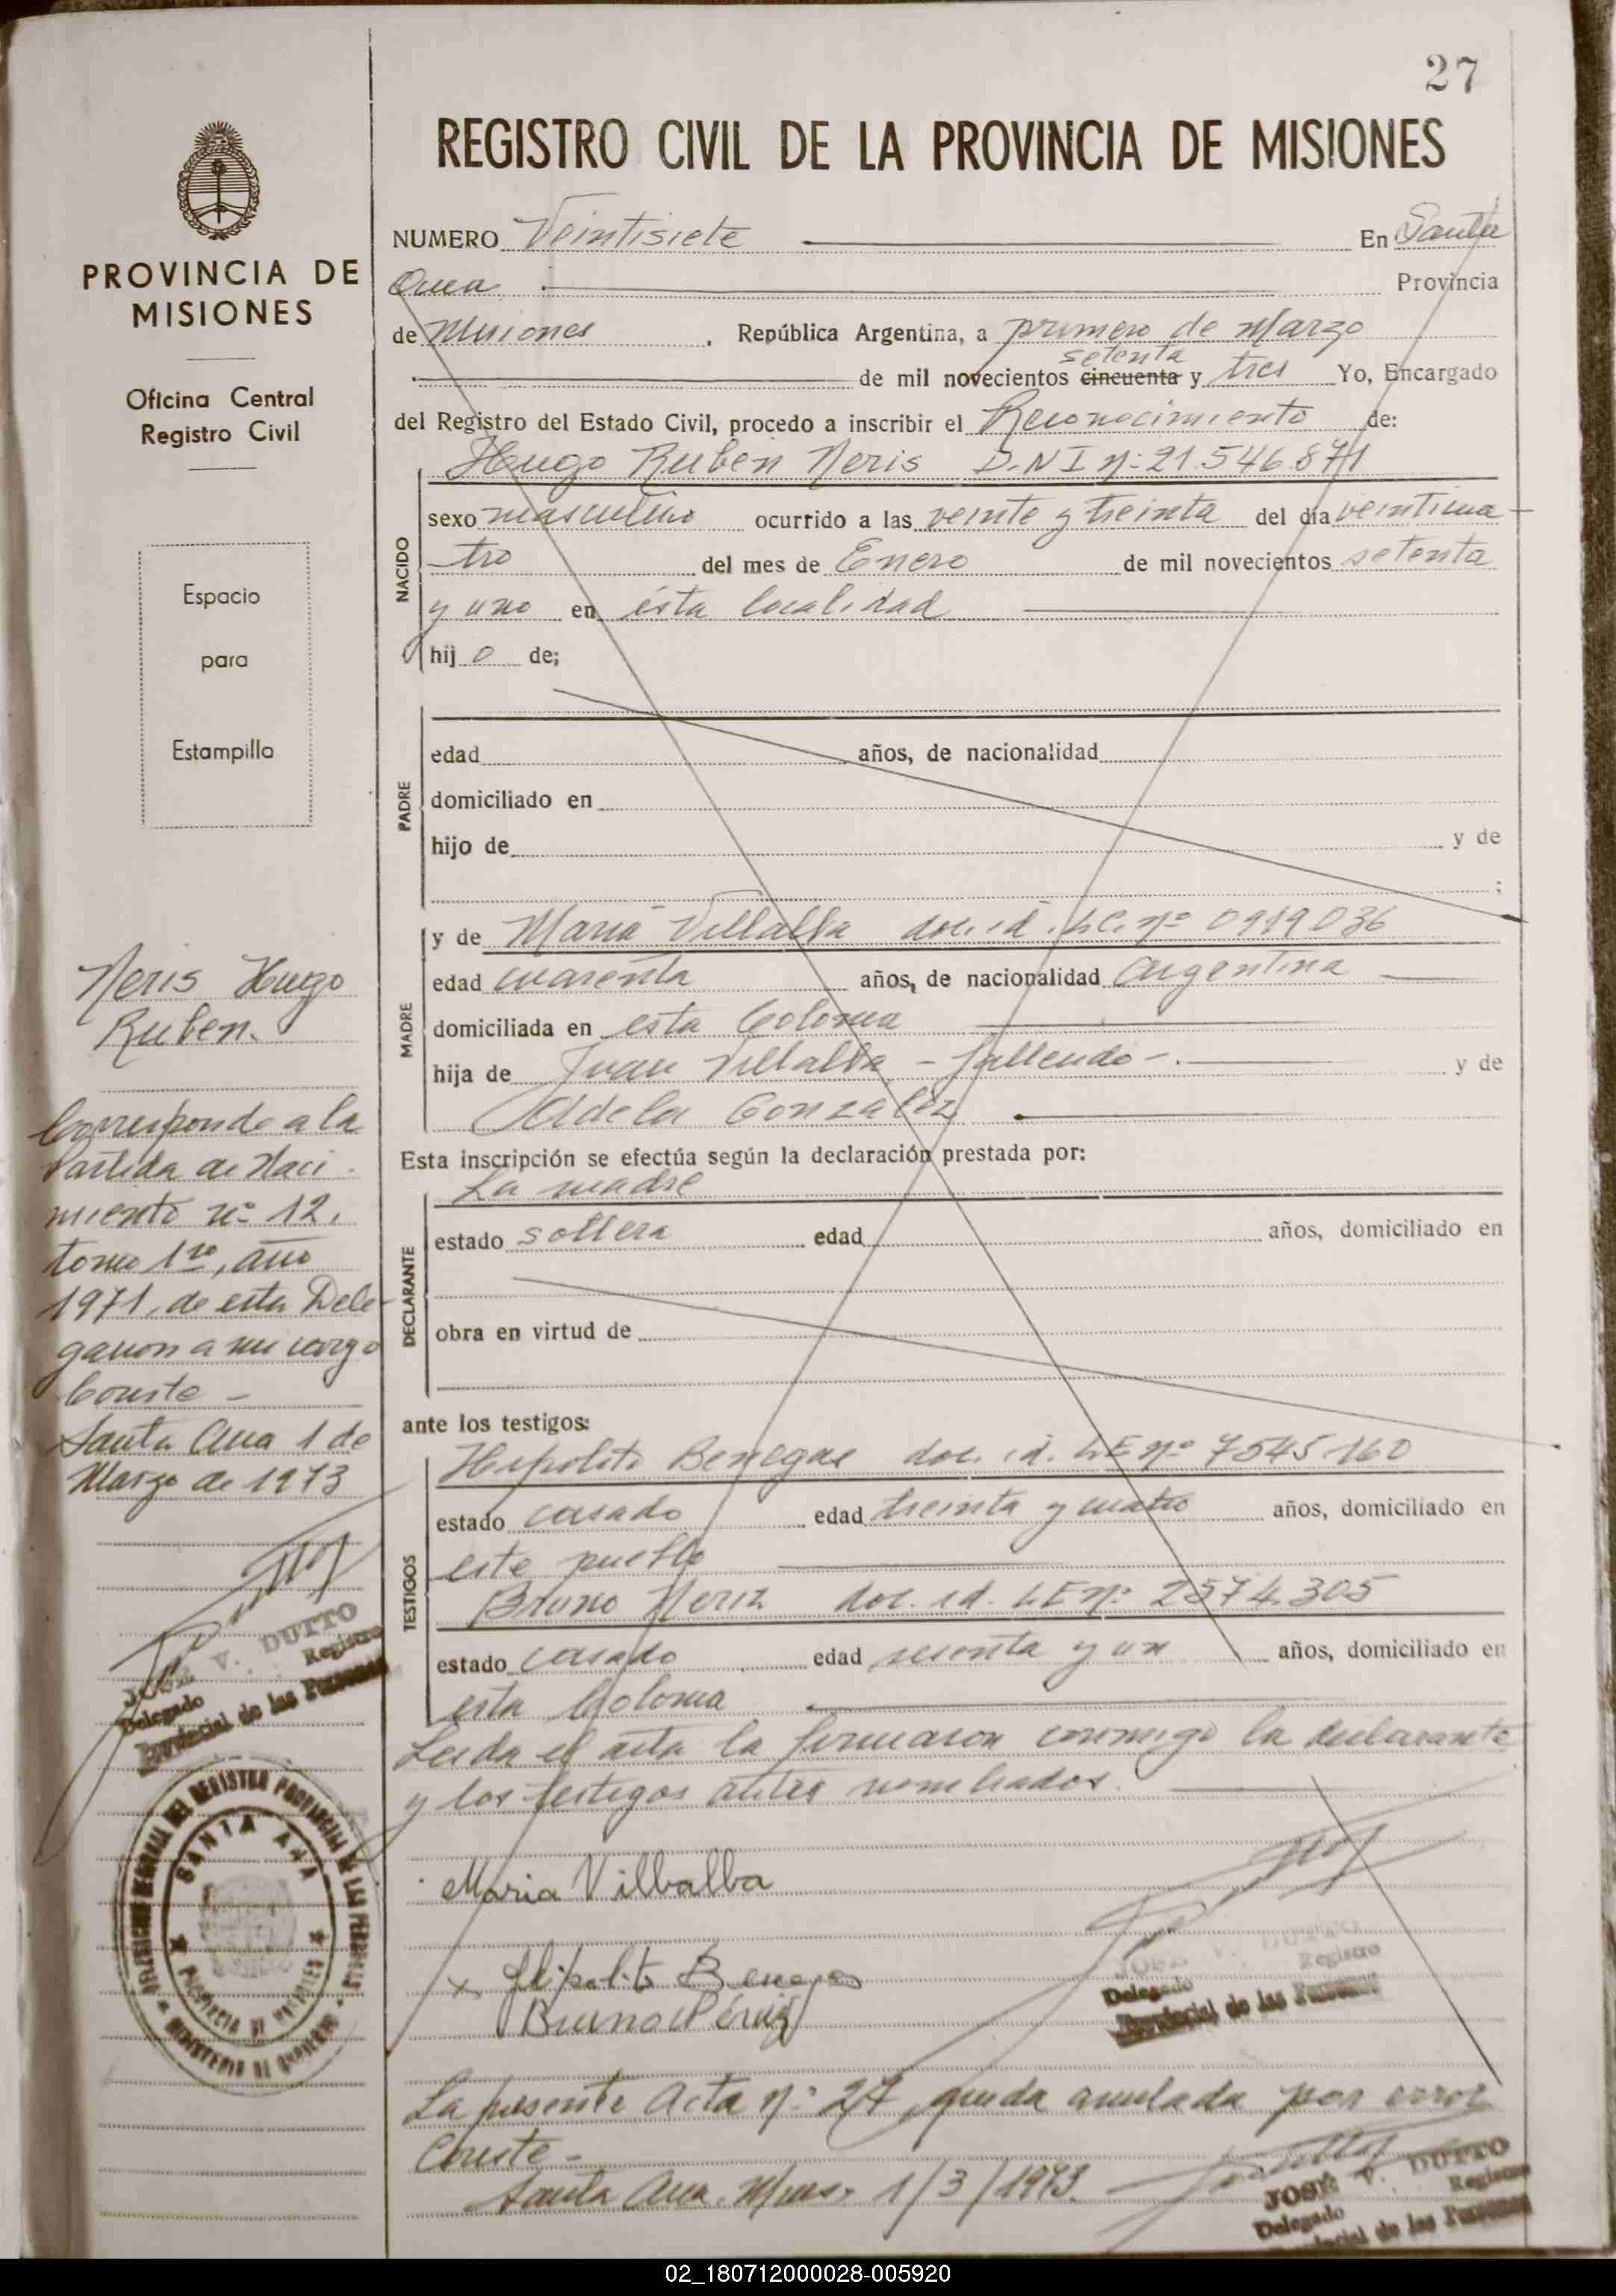 27
REGISTRO CIVIL DE LA PROVINCIA DE MISIONES
PROVINCIA DE
MISIONES
Oficina Central
Registro Civil
Espacio
para
Estampilla
Neris Hugo
Ruben.
Corresponde a la
Partida de Naci
miento nº 12.
tomo 1ro, año
1971, de esta Dele
gacion a mi cargo
Conste -
Santa Ana 1 de
Marzo de 1973
V. DUTTO
Registro
Delegado
Provincial de las Personas
SANTA ANA
NUMERO Veintisiete En Santa
Ana Provincia
de Misiones, República Argentina, a primero de Marzo
setenta
de mil novecientos cincuenta y tres Yo, Encargado
del Registro del Estado Civil, procedo a inscribir el Reconocimiento de:
Hugo Ruben Neris D.N I nº: 21.546.871
NACIDO
sexo masculino ocurrido a las veinte y treinta del día veinticua
tro del mes de Enero de mil novecientos setenta
y uno en ésta localidad
hij o de;
PADRE
edad años, de nacionalidad
domiciliado en
hijo de y de
;
MADRE
y de Maria Villalba doc. id. L.C. nº 0919036
edad cuarenta años, de nacionalidad argentina
domiciliada en esta Colonia
hija de Juan Villalba - fallecido -. y de
Adela Gonzalez
Esta inscripción se efectúa según la declaración prestada por:
La madre
DECLARANTE
estado soltera edad años, domiciliado en
obra en virtud de
ante los testigos:
TESTIGOS
Hipolito Benegas doc. id. L E nº 7545160
estado casado edad treinta y cuatro años, domiciliado en
este pueblo
Bruno Neriz doc. id. L E nº: 2574.305
estado casado edad sesenta y un años, domiciliado en
esta Colonia
Leida el acta la firmaron conmigo la declarante
y los testigos antes nombrados.
Maria Villbalba
x Hipolito Benegas
Bruno
Registro
Delegado
Provincial de las Personas
La presente Acta nº: 27, queda anulada por error
Conste -
Santa Ana. Mnes. 1/3/1973.
JOSE V. DUTTO
Registro
Delegado
Provincial de las Personas
02_180712000028-005920